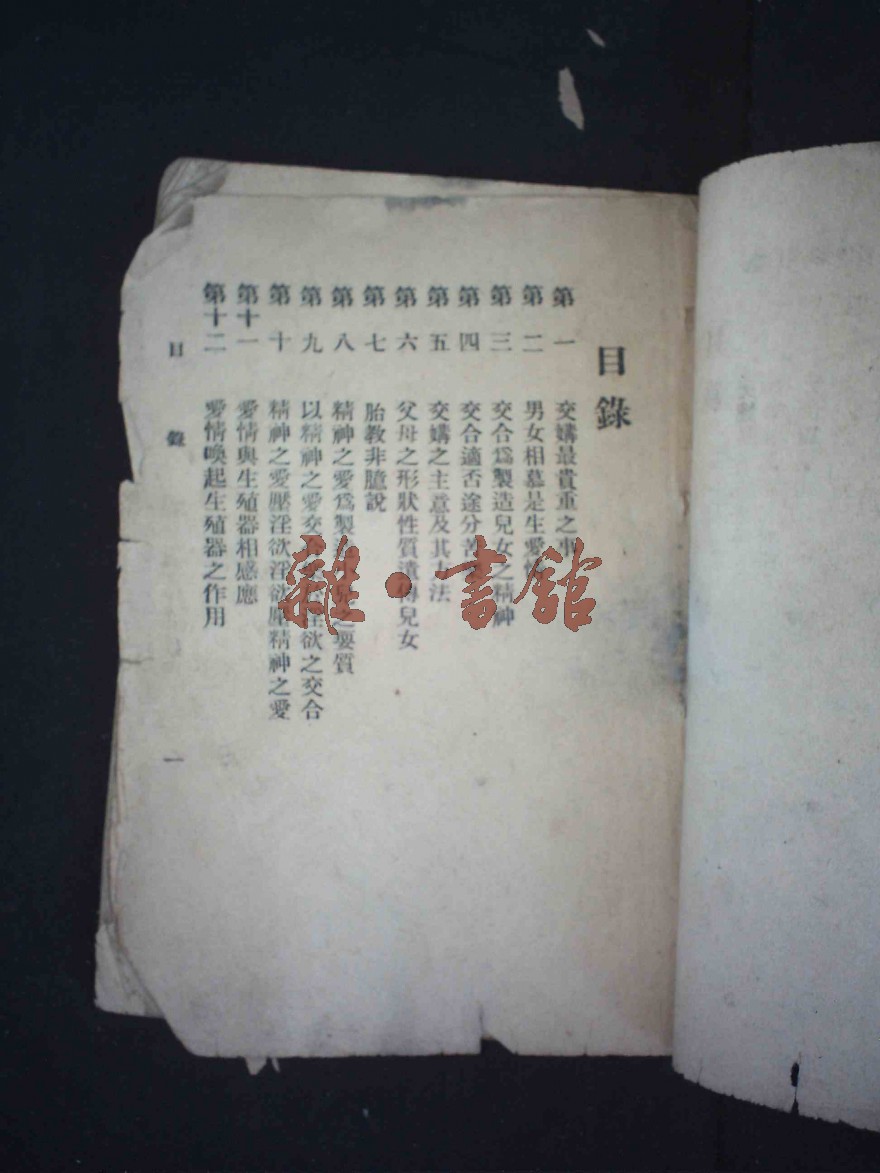 目錄
第一 交媾最貴重之事
第二 男女相慕是生愛情
第三 交合爲製造兒女之精神
第四 交合適否途分苦
第五 交媾之主意及其方法
第六 父母之形狀性質遺傳兒女
第七 胎教非臆說
第八 精神之愛爲製造小兒之要質
第九 以精神之愛交合 淫欲之交合
第十 精神之愛壓淫欲淫欲壓精神之愛
第十一 愛情與生殖器相感應
第十二 愛情喚起生殖器之作用
目錄 一
雜·書館